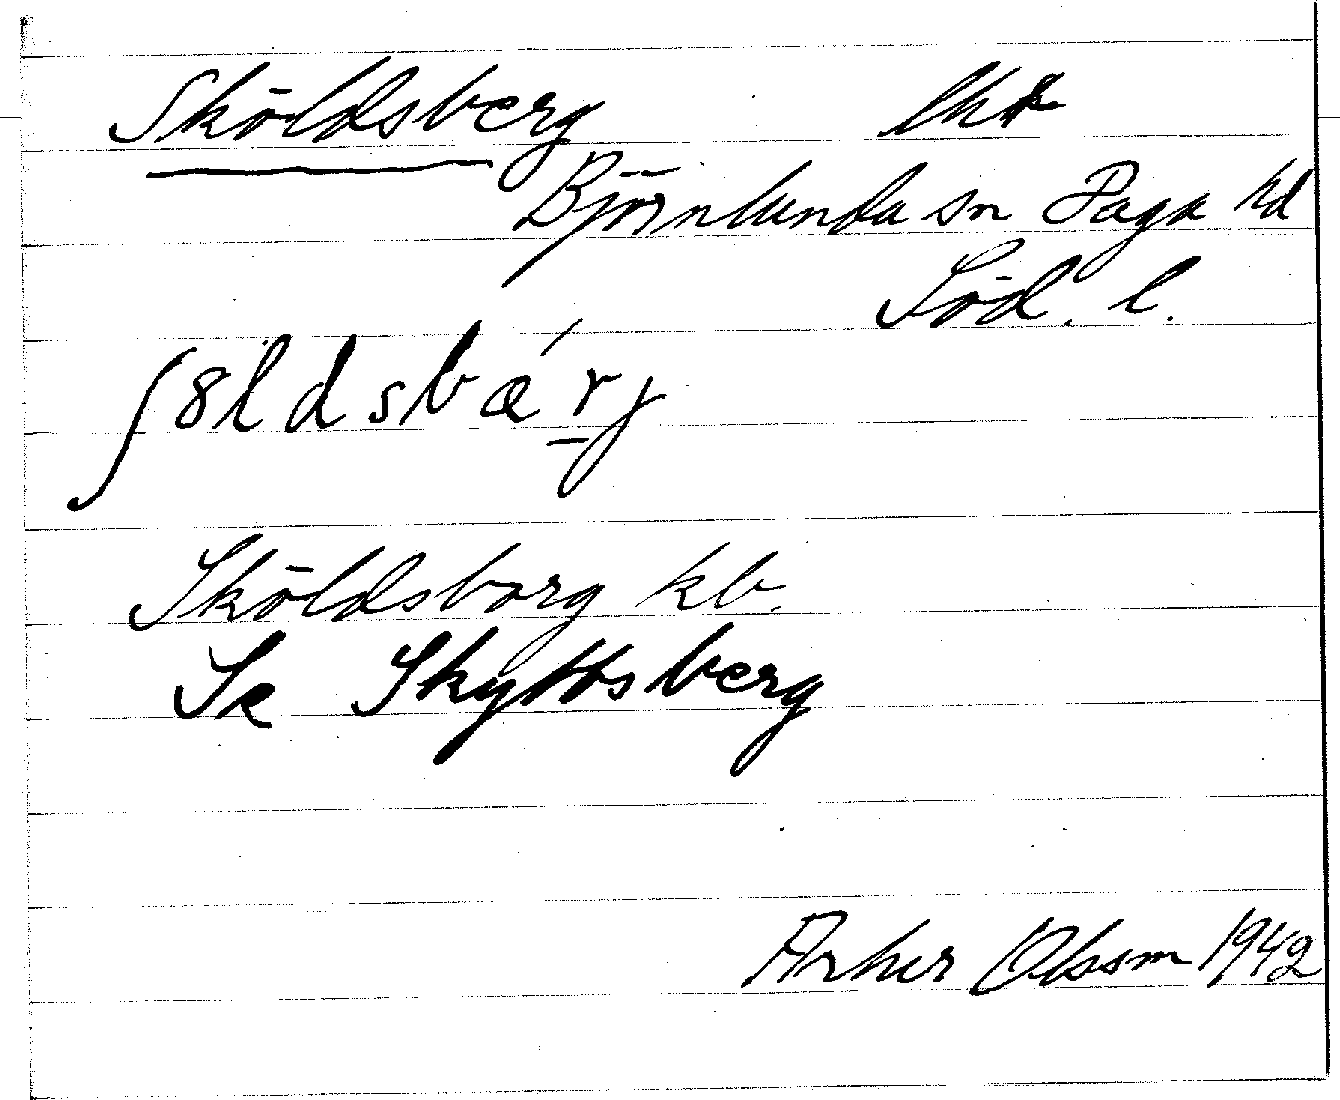 Sköldsberg lht
Björnlunda sn Daga hd
Söd. l.
ʃ8ldsbæ´rj
Sköldsborg kb.
Se Skyttsberg
Arher Olssm 1942